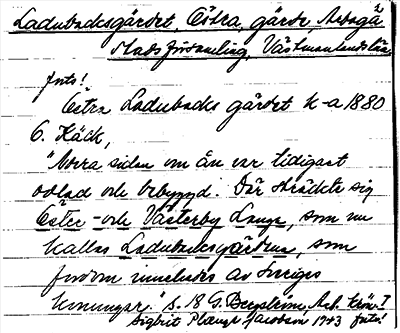 Ladubacksgärdet, Östra, gärde, Arboga
Stadsförsamling, Västmanlands län
Jnts!
Östra Ladubacks gärdet k-a 1880
C. Käck,
"Norra sidan om ån var tidigast
odlad och bebyggd. Där sträckte sig
Öster- och Västerby Lunga, som nu
kallas Ladubacksgärdena, som
fordom innehades av Sveriges
konungar." s. 18 G. Bergström, Arb. krön. I
Sigbrit Plænge Jacobson 1943 Jnts!